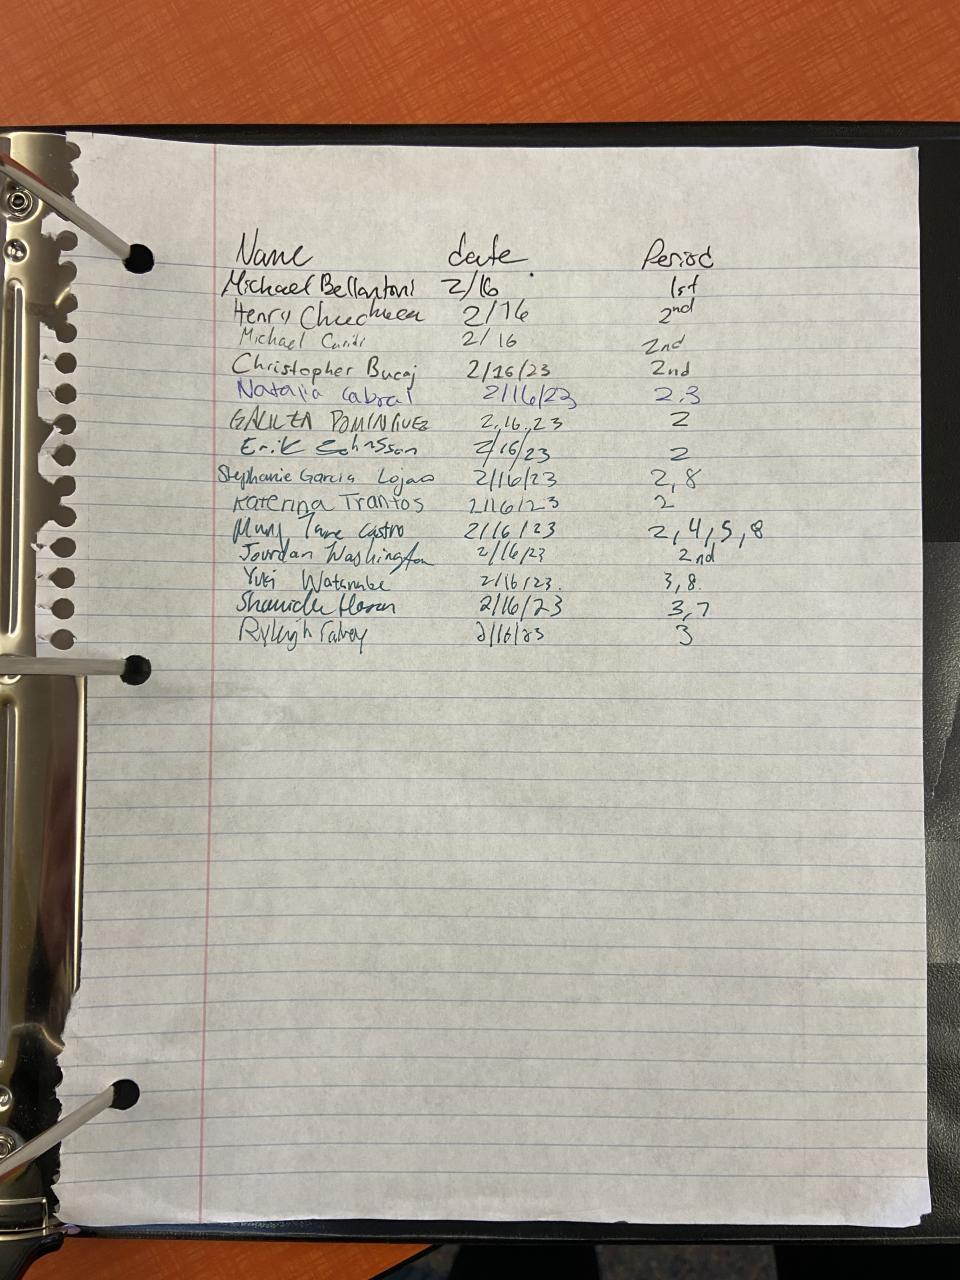 Name date Period
Michael Bellantoni 2/16 1st
Henry 2/16 2nd
Michael 2/16 2nd
Christopher Bucaj 2/16/23 2nd
Natalia Cabral 2/16/23 2,3
DOMINGUEZ 2.16.23 2
Erik Johnsson 2/16/23 2
Stephanie Garcia 2/16/23 2,8
Katerina Trantos 2/16/23 2
Mary Jane Castro 2/16/23 2,4,5,8
Jourdan Washington 2/16/23 2nd
Yuki Watanabe 2/16/23. 3,8.
2/16/23 3,7
Ryleigh Falvey 2/16/23 3